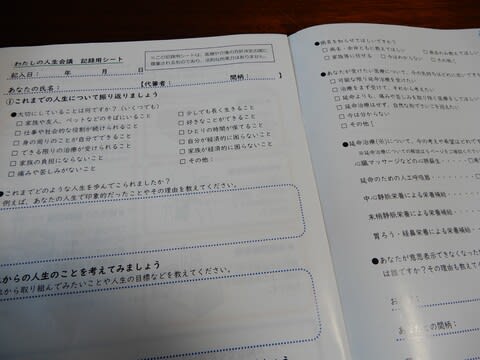 わたしの人生会議　記録用シート
※この記録用シートは、医療や介護の方針決定の際に
尊重されるものであり、法的な拘束力はありません。
記入日：　年　月　日
あなたの氏名：　【代筆者：　間柄：　】
①これまでの人生について振り返りましょう
●大切にしていることは何ですか？（いくつでも）
□ 家族や友人、ペットなどのそばにいること
□ 仕事や社会的な役割が続けられること
□ 身の周りのことが自分でできること
□ できる限りの治療が受けられること
□ 家族の負担にならないこと
□ 痛みや苦しみがないこと
□ 少しでも長く生きること
□ 好きなことができること
□ ひとりの時間が保てること
□ 自分が経済的に困らないこと
□ 家族が経済的に困らないこと
□ その他：
●これまでどのような人生を歩んでこられましたか？
例えば、あなたの人生で印象的だったことやその理由を教えてください。
からの人生のことを考えてみましょう
から取り組んでみたいことや人生の目標などを教えてください。
●病名を知らせてほしいですか？
□ 病名・余命ともに教えてほしい
□ 家族等に任せる　□ 今はわからない　□ その他
●あなたが受けたい医療について、今の気持ちを
□ 可能な限り、延命治療を
□ 治療をまず受けて、それから考
□ 延命よりも、痛みや苦しみを取り除く
□ 延命治療はせず、自然な形で
□ 今は分からない
□ その他［
●延命治療について、今の考えや希望は
心臓マッサージなどの心肺蘇生
延命のための人工呼吸器
中心静脈栄養による栄養補給
末梢静脈栄養による栄養補給
胃ろう・経鼻栄養による栄養補給
●あなたが意思表示できなくなった
は誰ですか？その理由も教えて
あなたとの間柄：